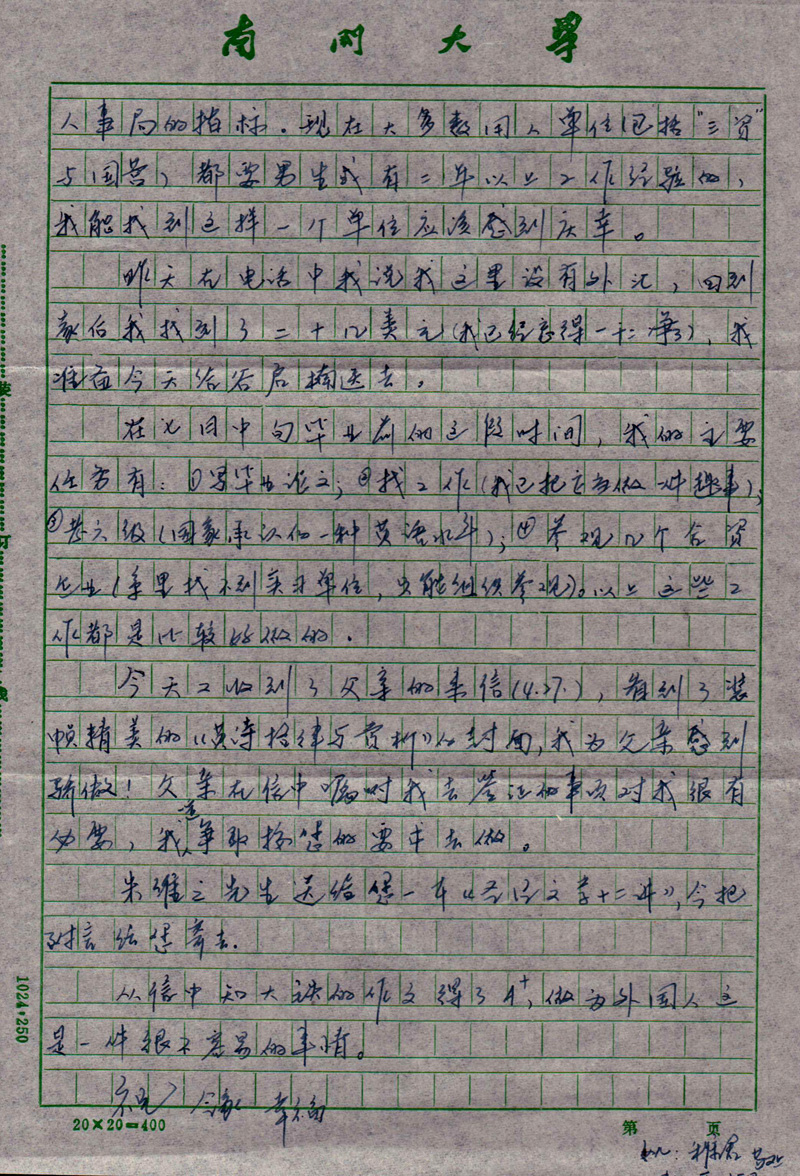 南开大学
人事局的指标。现在大多数用人单位(包括"三资"
与国营)都要男生或有二年以上工作经验的,
我能找到这样一个单位应该感到庆幸。
昨天在电话中我说我这里没有外汇,回到
家后我找到了二十几美元(我已经忘得一干二净了),我
准备今天给谷启楠送去。
在七月中旬毕业前的这段时间,我的主要
任务有:①写毕业论文;②找工作(我已把它当做一件趣事);
③考六级(国家承认的一种英语水平);④参观几个合资
企业(系里找不到实习单位,只能组织参观)。以上这些工
作都是比较好做的.
今天又收到了父亲的来信(4.27.),看到了装
帧精美的《英诗格律与赏析》的封面,我为父亲感到
骄傲!父亲在信中嘱咐我去签证的事项对我很有
必要,我争取按您的要求去做。
朱维之先生送给您一本《圣经文学十二讲》,今把
附言给您寄去.
从信中知大 的作文得了A+,做为外国人这
是一件很不容易的事情。
祝 合家 幸福
20×20=400
第 页
1024·250
装
订